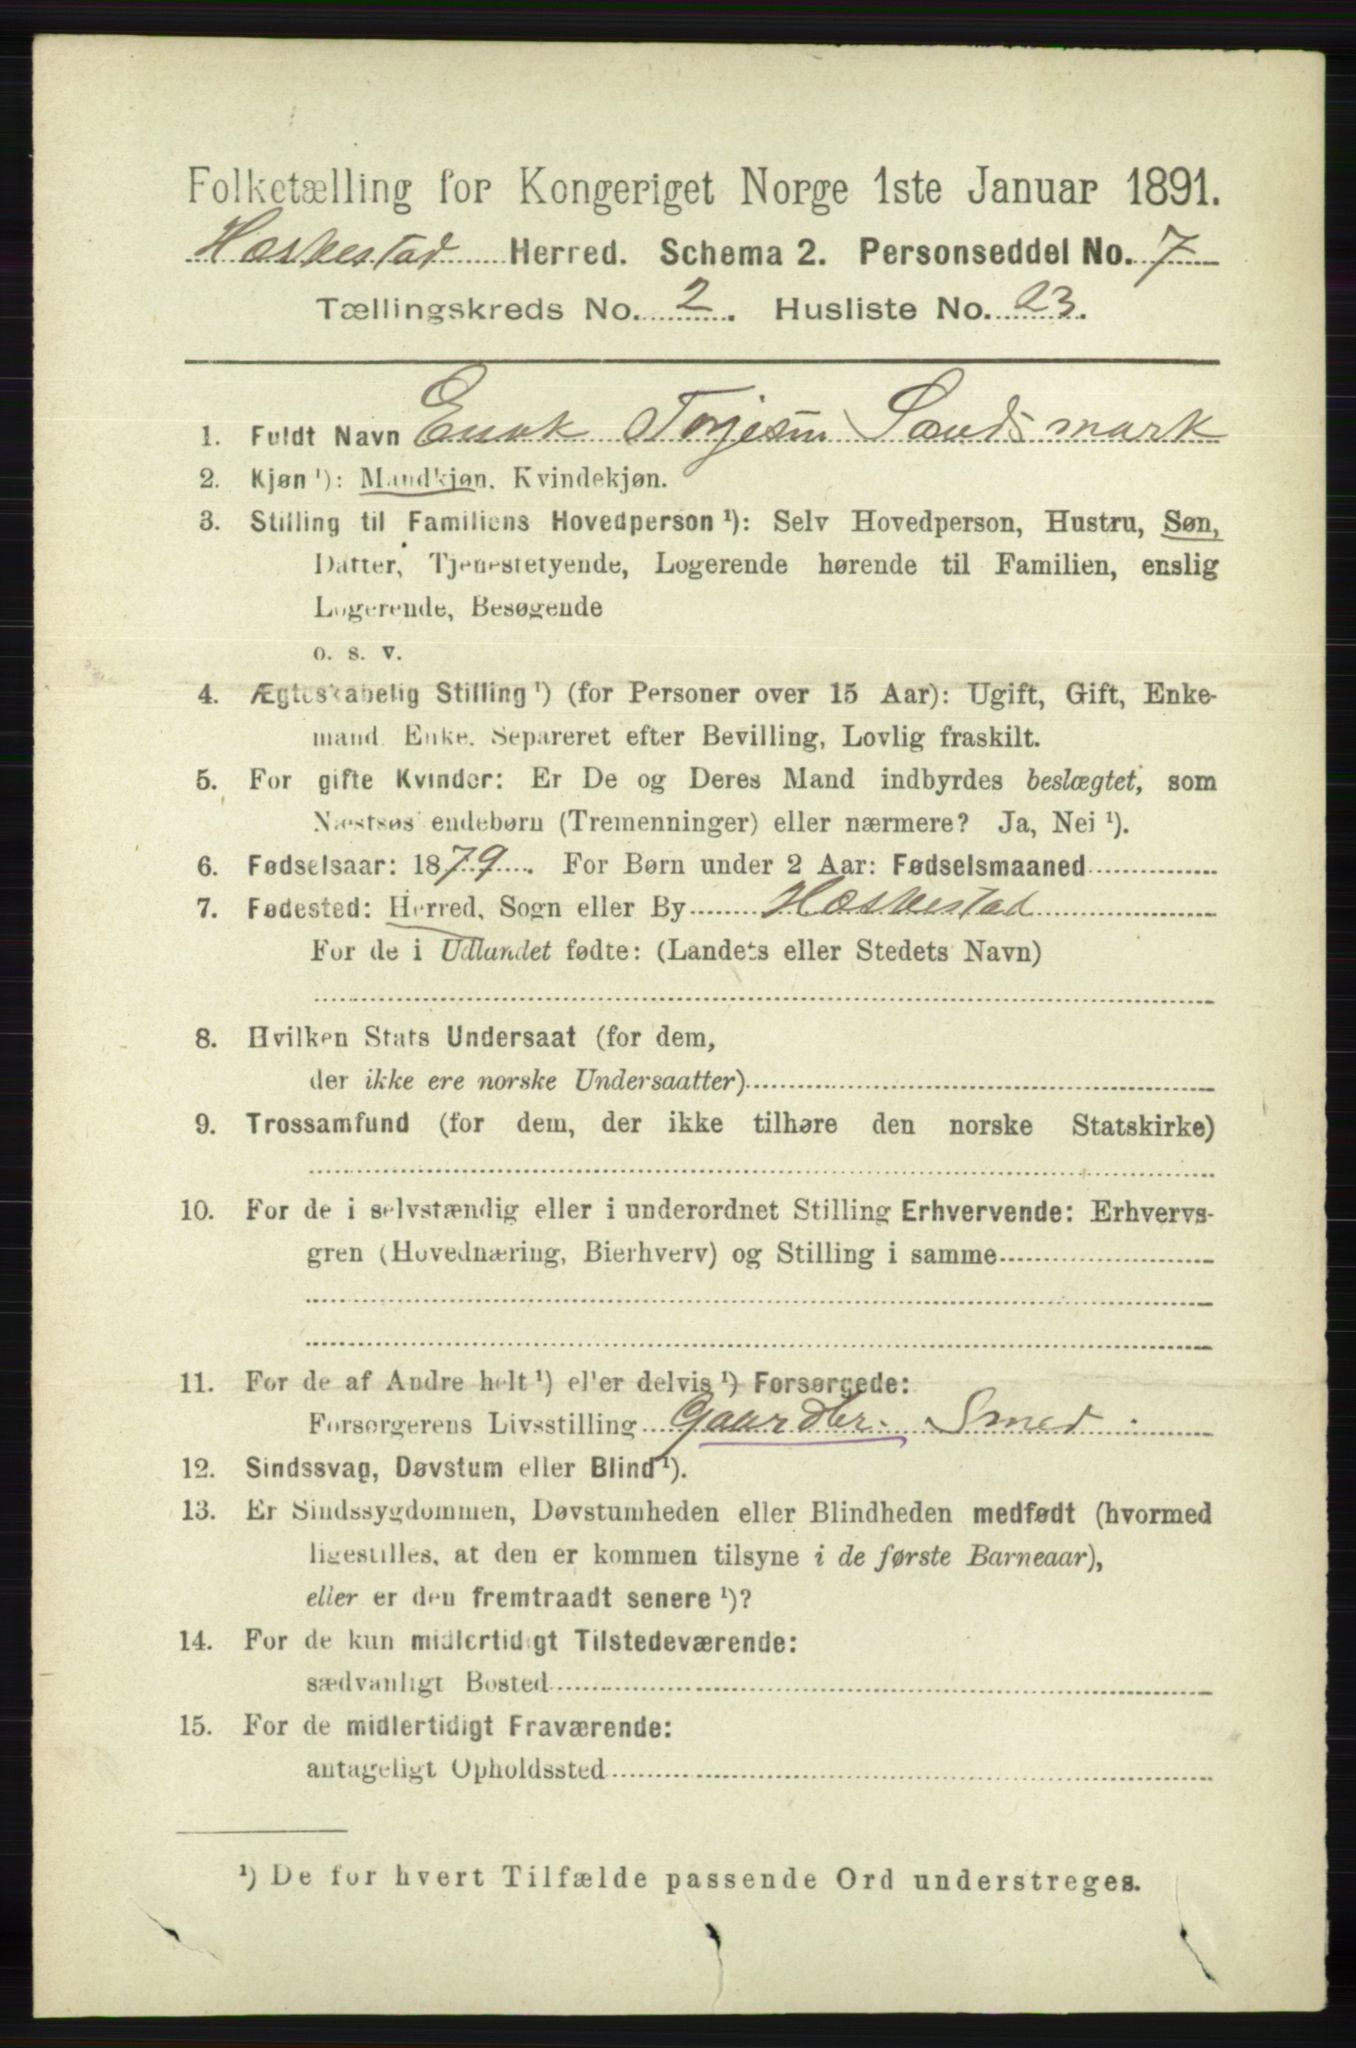 Folketælling for Kongeriget Norge 1ste Januar 1891.
Heskestad Herred. Schema 2. Personseddel No. 7
Tællingskreds No. 2. Husliste No. 23.
1. Fuldt Navn Enok Torjesen Sandsmark
2. Kjøn ¹): Mandkjøn. Kvindekjøn.
3. Stilling til Familiens Hovedperson ¹): Selv Hovedperson, Hustru, Søn,
Datter, Tjenestetyende, Logerende hørende til Familien, enslig
Logerende, Besøgende
o. s. v.
4. Ægteskabelig Stilling ¹) (for Personer over 15 Aar): Ugift, Gift, Enke-
mand. Enke. Separeret efter Bevilling, Lovlig fraskilt.
5. For gifte Kvinder: Er De og Deres Mand indbyrdes beslægtet, som
Næstsøskendebørn (Tremenninger) eller nærmere? Ja, Nei ¹).
6. Fødselsaar: 1879. For Børn under 2 Aar: Fødselsmaaned
7. Fødested: Herred, Sogn eller By Heskestad
For de i Udlandet fødte: (Landets eller Stedets Navn)
8. Hvilken Stats Undersaat (for dem,
der ikke ere norske Undersaatter)
9. Trossamfund (for dem, der ikke tilhøre den norske Statskirke)
10. For de i selvstændig eller i underordnet Stilling Erhvervende: Erhvervs-
gren (Hovednæring, Bierhverv) og Stilling i samme
11. For de af Andre helt ¹) eller delvis ¹) Forsørgede:
Forsørgerens Livsstilling Gaardbr. Smed
12. Sindssvag, Døvstum eller Blind ¹).
13. Er Sindssygdommen, Døvstumheden eller Blindheden medfødt (hvormed
ligestilles, at den er kommen tilsyne i de første Barneaar),
eller er den fremtraadt senere ¹)?
14. For de kun midlertidigt Tilstedeværende:
sædvanligt Bosted
15. For de midlertidigt Fraværende:
antageligt Opholdssted
¹) De for hvert Tilfælde passende Ord understreges.